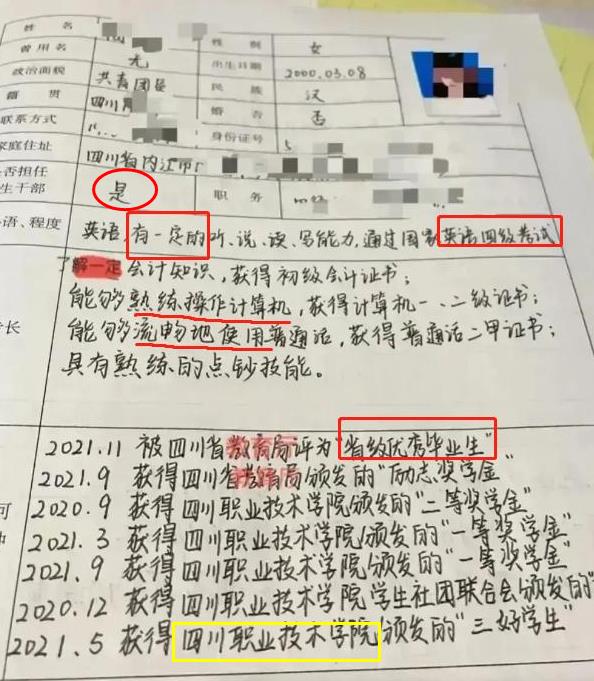 姓名 性别 女
曾用名 无 出生日期 2000.03.08
政治面貌 共青团员 民族 汉
籍贯 四川 婚否 否
联系方式 身份证号 5
家庭住址 四川省内江市
是否担任学生干部 是 职务
语、程度 英语,有一定的听、说、读、写能力,通过国家英语四级考试
了解一定会计知识,获得初级会计证书;
能够熟练操作计算机,获得计算机一、二级证书;
长 能够流畅地使用普通话,获得普通话二甲证书;
具有熟练的点钞技能。
2021.11 被四川省教育局评为"省级优秀毕业生"
2021.9 获得四川省教育局颁发的"励志奖学金"
2020.9 获得四川职业技术学院颁发的"二等奖学金"
2021.3 获得四川职业技术学院颁发的"一等奖学金"
2021.9 获得四川职业技术学院颁发的"一等奖学金"
2020.12 获得四川职业技术学院学生社团联合会颁发的"
2021.5 获得四川职业技术学院颁发的"三好学生"